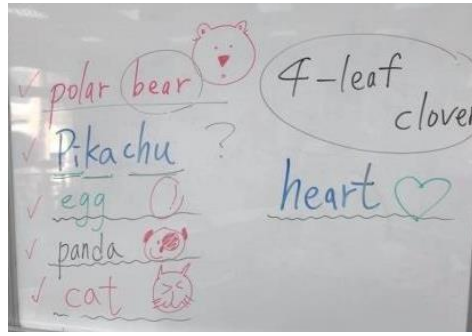 polar bear
Pikachu ?
egg
panda
cat
4-leaf
clover
heart